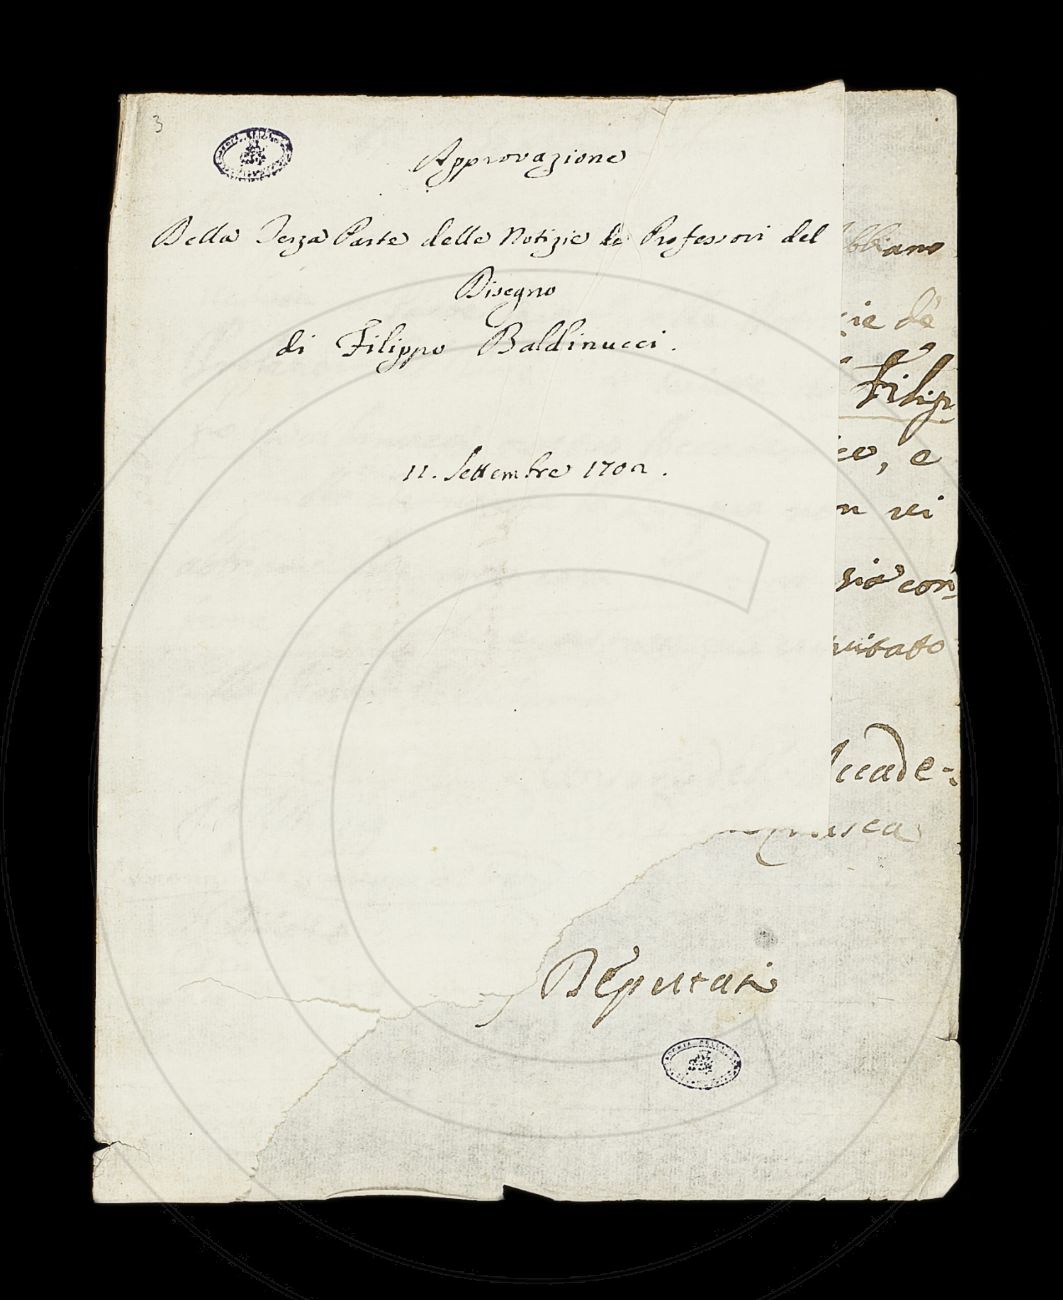 3
Approvazione
Della Terza Parte delle Notizie de Professori del
Disegno
di Filippo Baldinucci.
11. Settembre 1702.
bbiano
zie de'
Filip-
co, e
n vi
sia con-
Accade-
Deputati